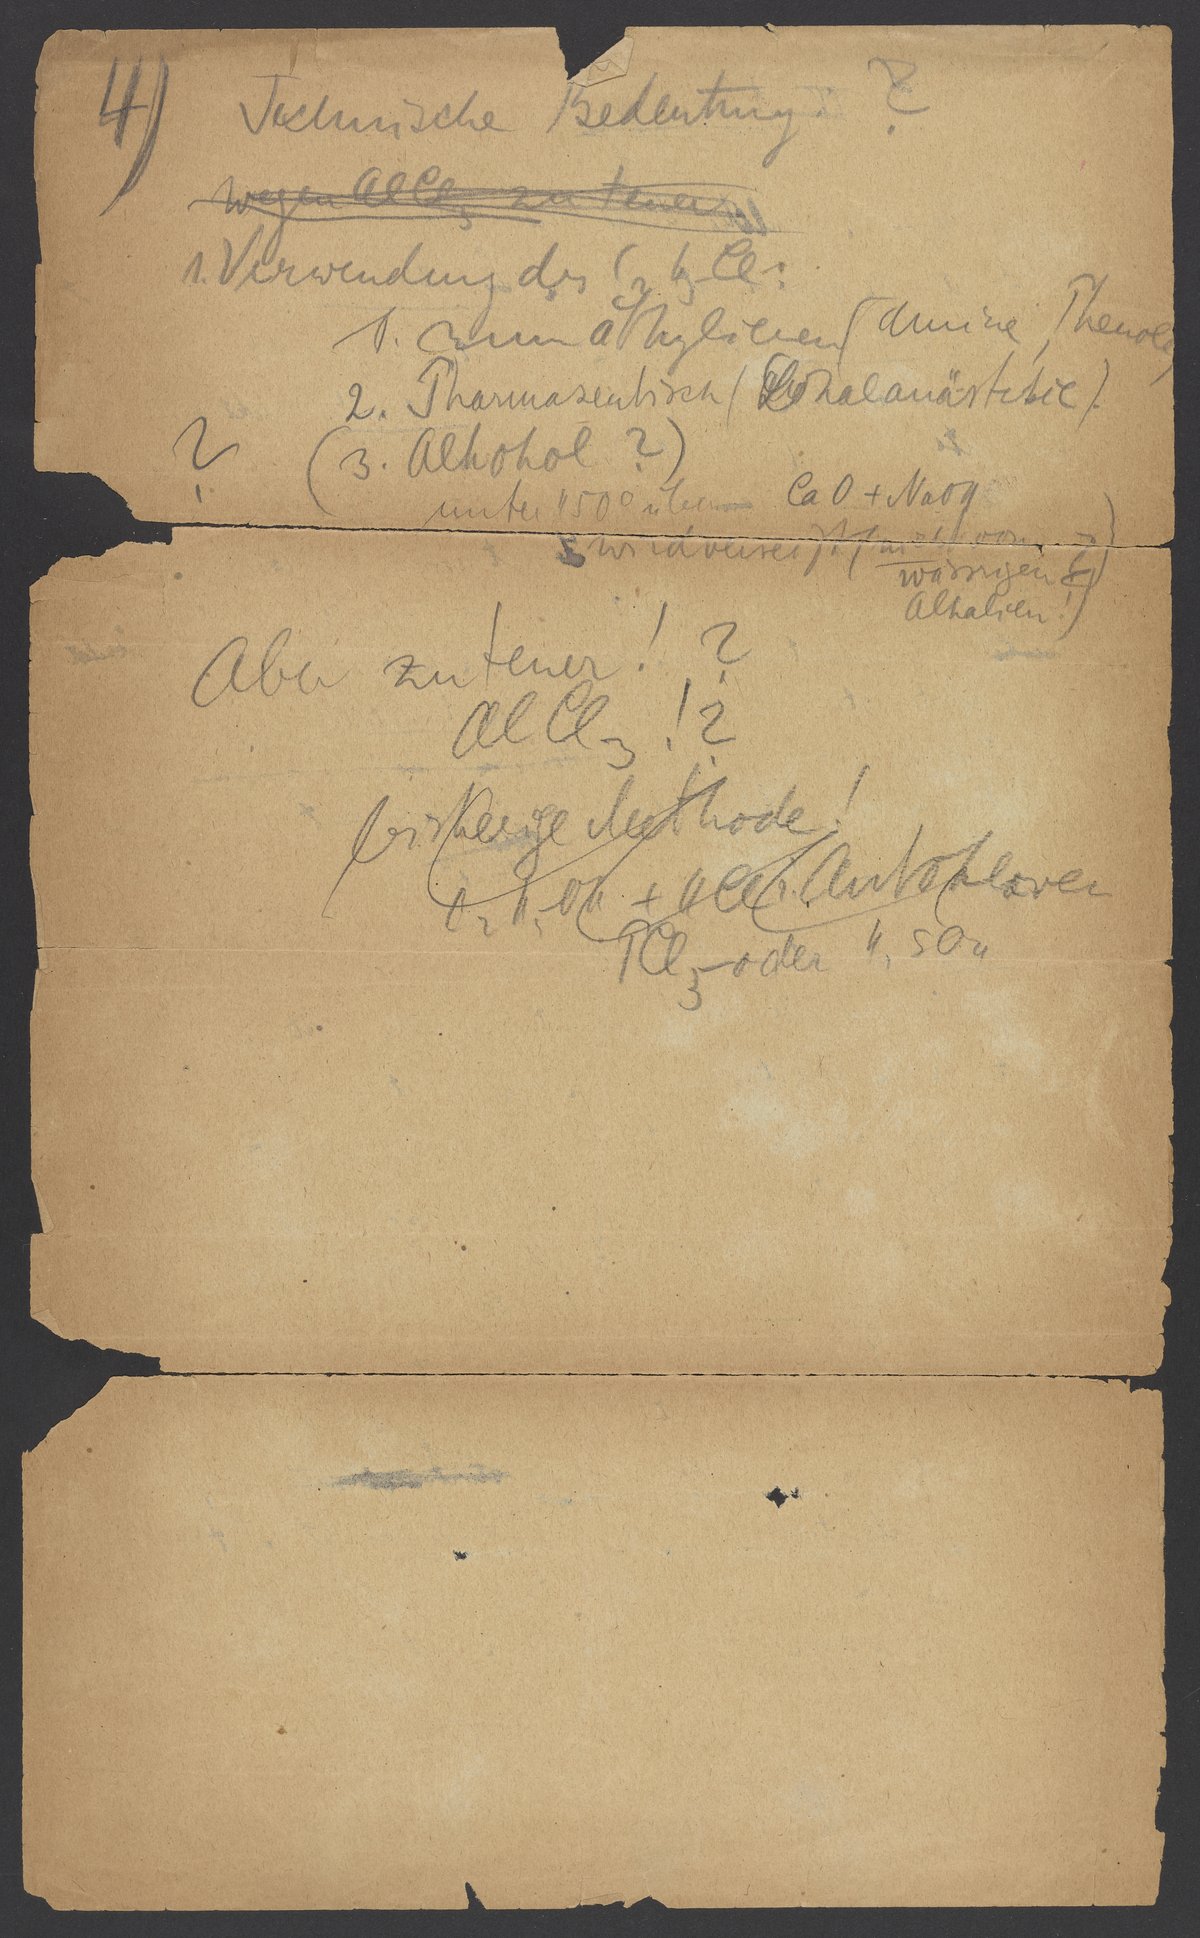 4) Technische Bedeutung: ?
wegen AlCl3 zu teuer
1. Verwendung des C2H5Cl:
1. zum äthylieren (Amine, Phenole)
2. Pharmazeutisch (Lokalanästhesie).
? (3. Alkohol ?)
unter 450° über CaO + NaOH
wird verseift
wässrigen
Alkalien!)
Aber zu teuer! ?
AlCl3 !?
bisherige Methode!
C2H5OH + HCl i. Autoklaven
PCl3 oder H2SO4